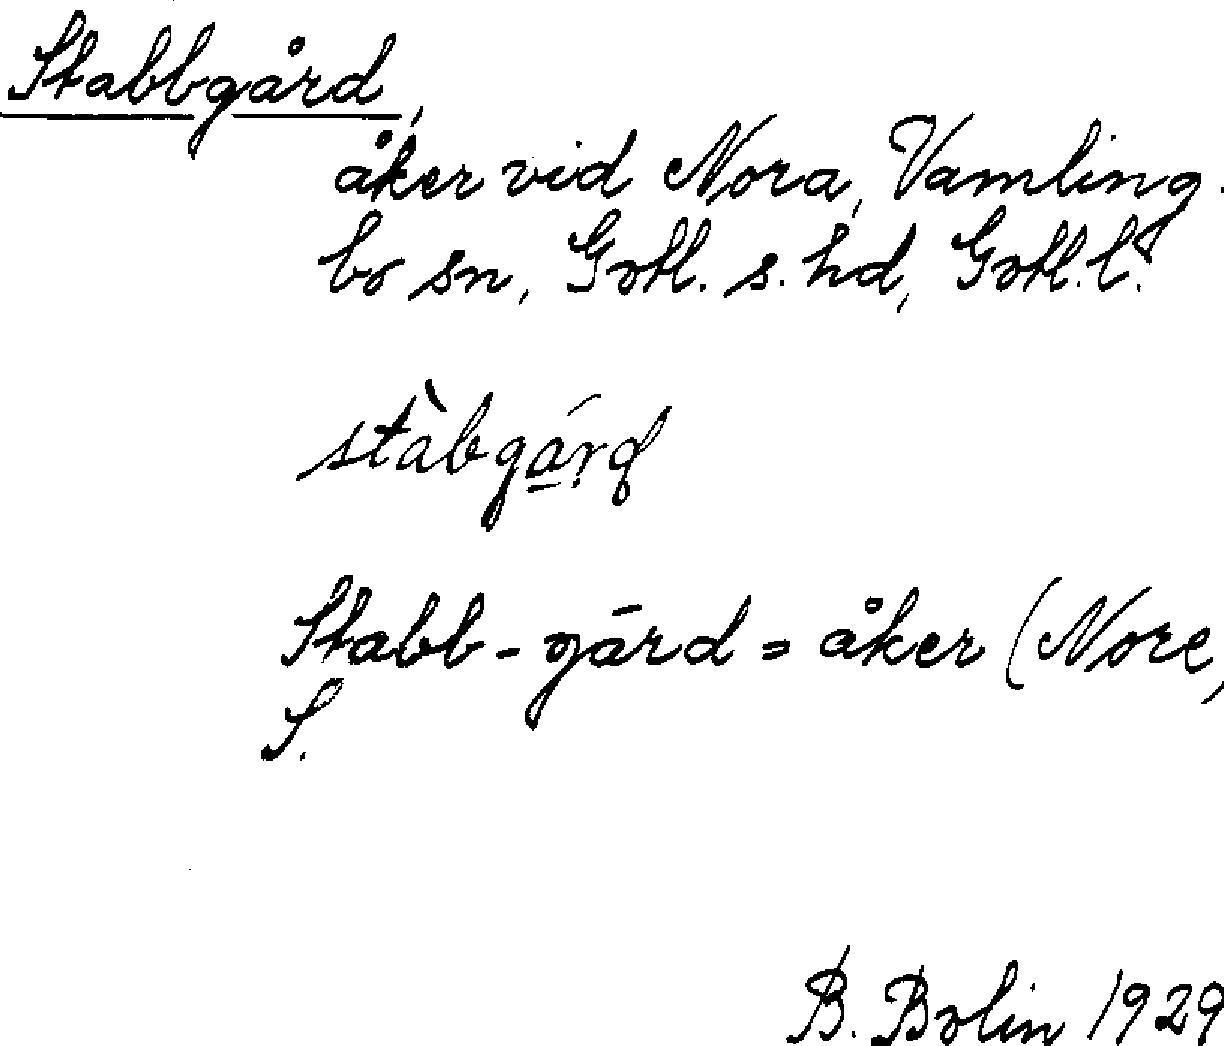 Stabbgård,
åker vid Nora, Vamling-
bo sn, Gotl. s. hd, Gotl. l.
stàbgárd
Stabb-gārd = åker (Nore,
S.
B. Bolin 1929